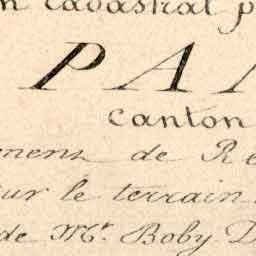 n cadastral p
PA
canton
emens de Re
sur le terrain
de Mr. Boby D